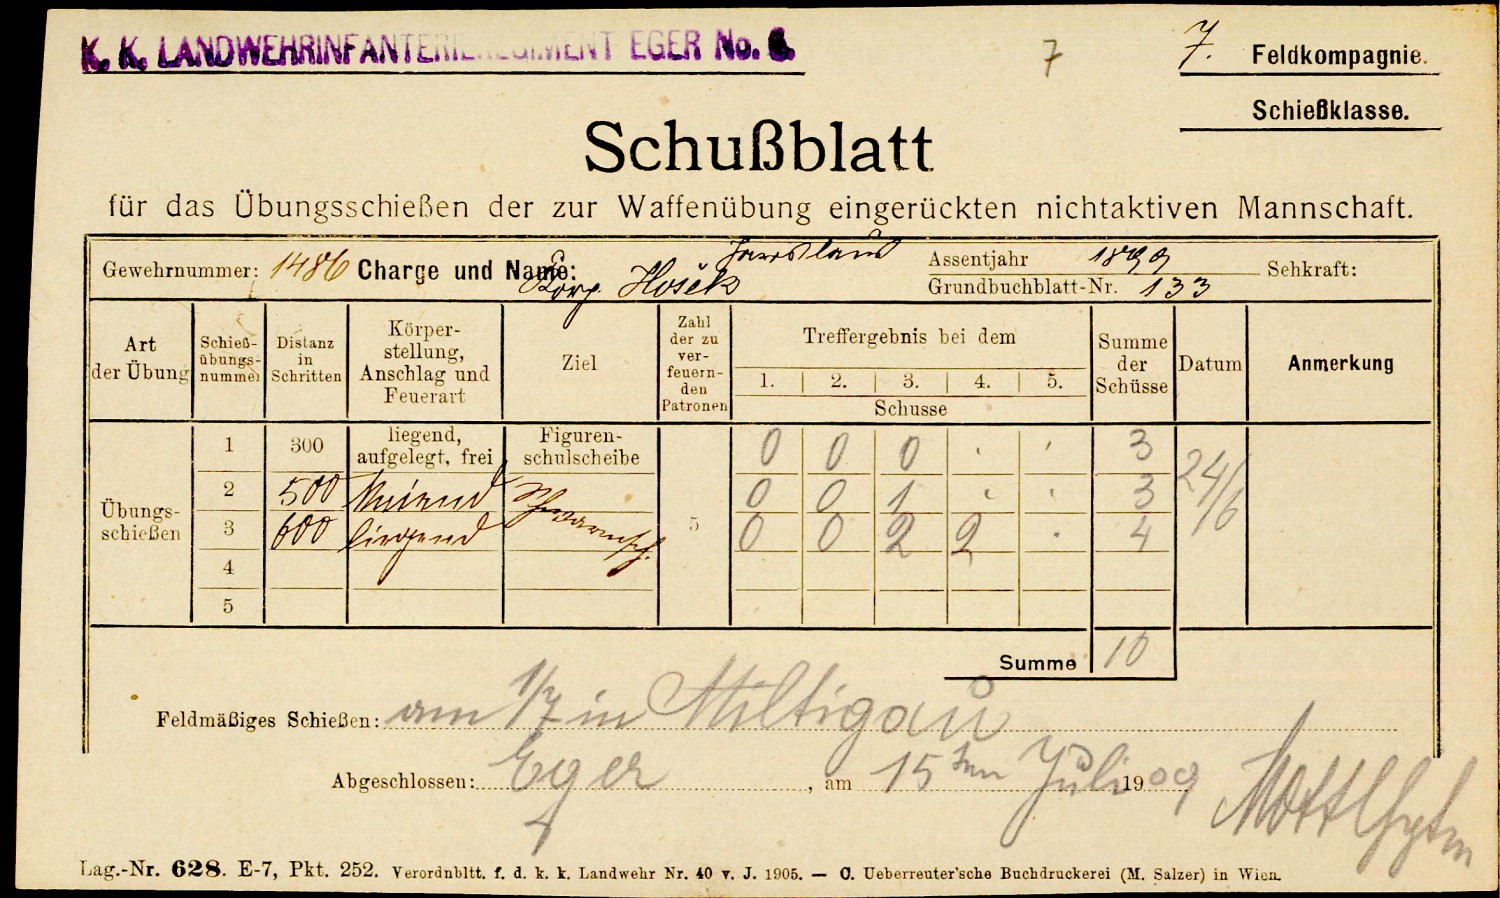 K. K. LANDWEHRINFANTERIEREGIMENT EGER No. 6.
7
7. Feldkompagnie.
Schießklasse.
Schußblatt
für das Übungsschießen der zur Waffenübung eingerückten nichtaktiven Mannschaft.
Gewehrnummer: 1486 Charge und Name: Korp. Hošek Jaroslaus Assentjahr 1899 Sehkraft:
Grundbuchblatt-Nr. 133
Art der Übung Schieß-übungs-nummer Distanz in Schritten Körper-stellung, Anschlag und Feuerart Ziel Zahl der zu ver-feuern-den Patronen Treffergebnis bei dem Summe der Schüsse Datum Anmerkung
1. 2. 3. 4. 5.
Schusse
Übungs-schießen
1 300 liegend, aufgelegt, frei Figuren-schulscheibe 0 0 0 . . 3 24/6
2 500 knieend 0 0 1 . . 3
3 600 liegend Schwarmsch. 5 0 0 2 2 . 4
4
5
Summe 10
Feldmäßiges Schießen: am 1/7 in Miltigau
Abgeschlossen: Eger, am 15ten Juli 1909
Lag.-Nr. 628. E-7, Pkt. 252. Verordnbltt. f. d. k. k. Landwehr Nr. 40 v. J. 1905. — C. Ueberreuter'sche Buchdruckerei (M. Salzer) in Wien.